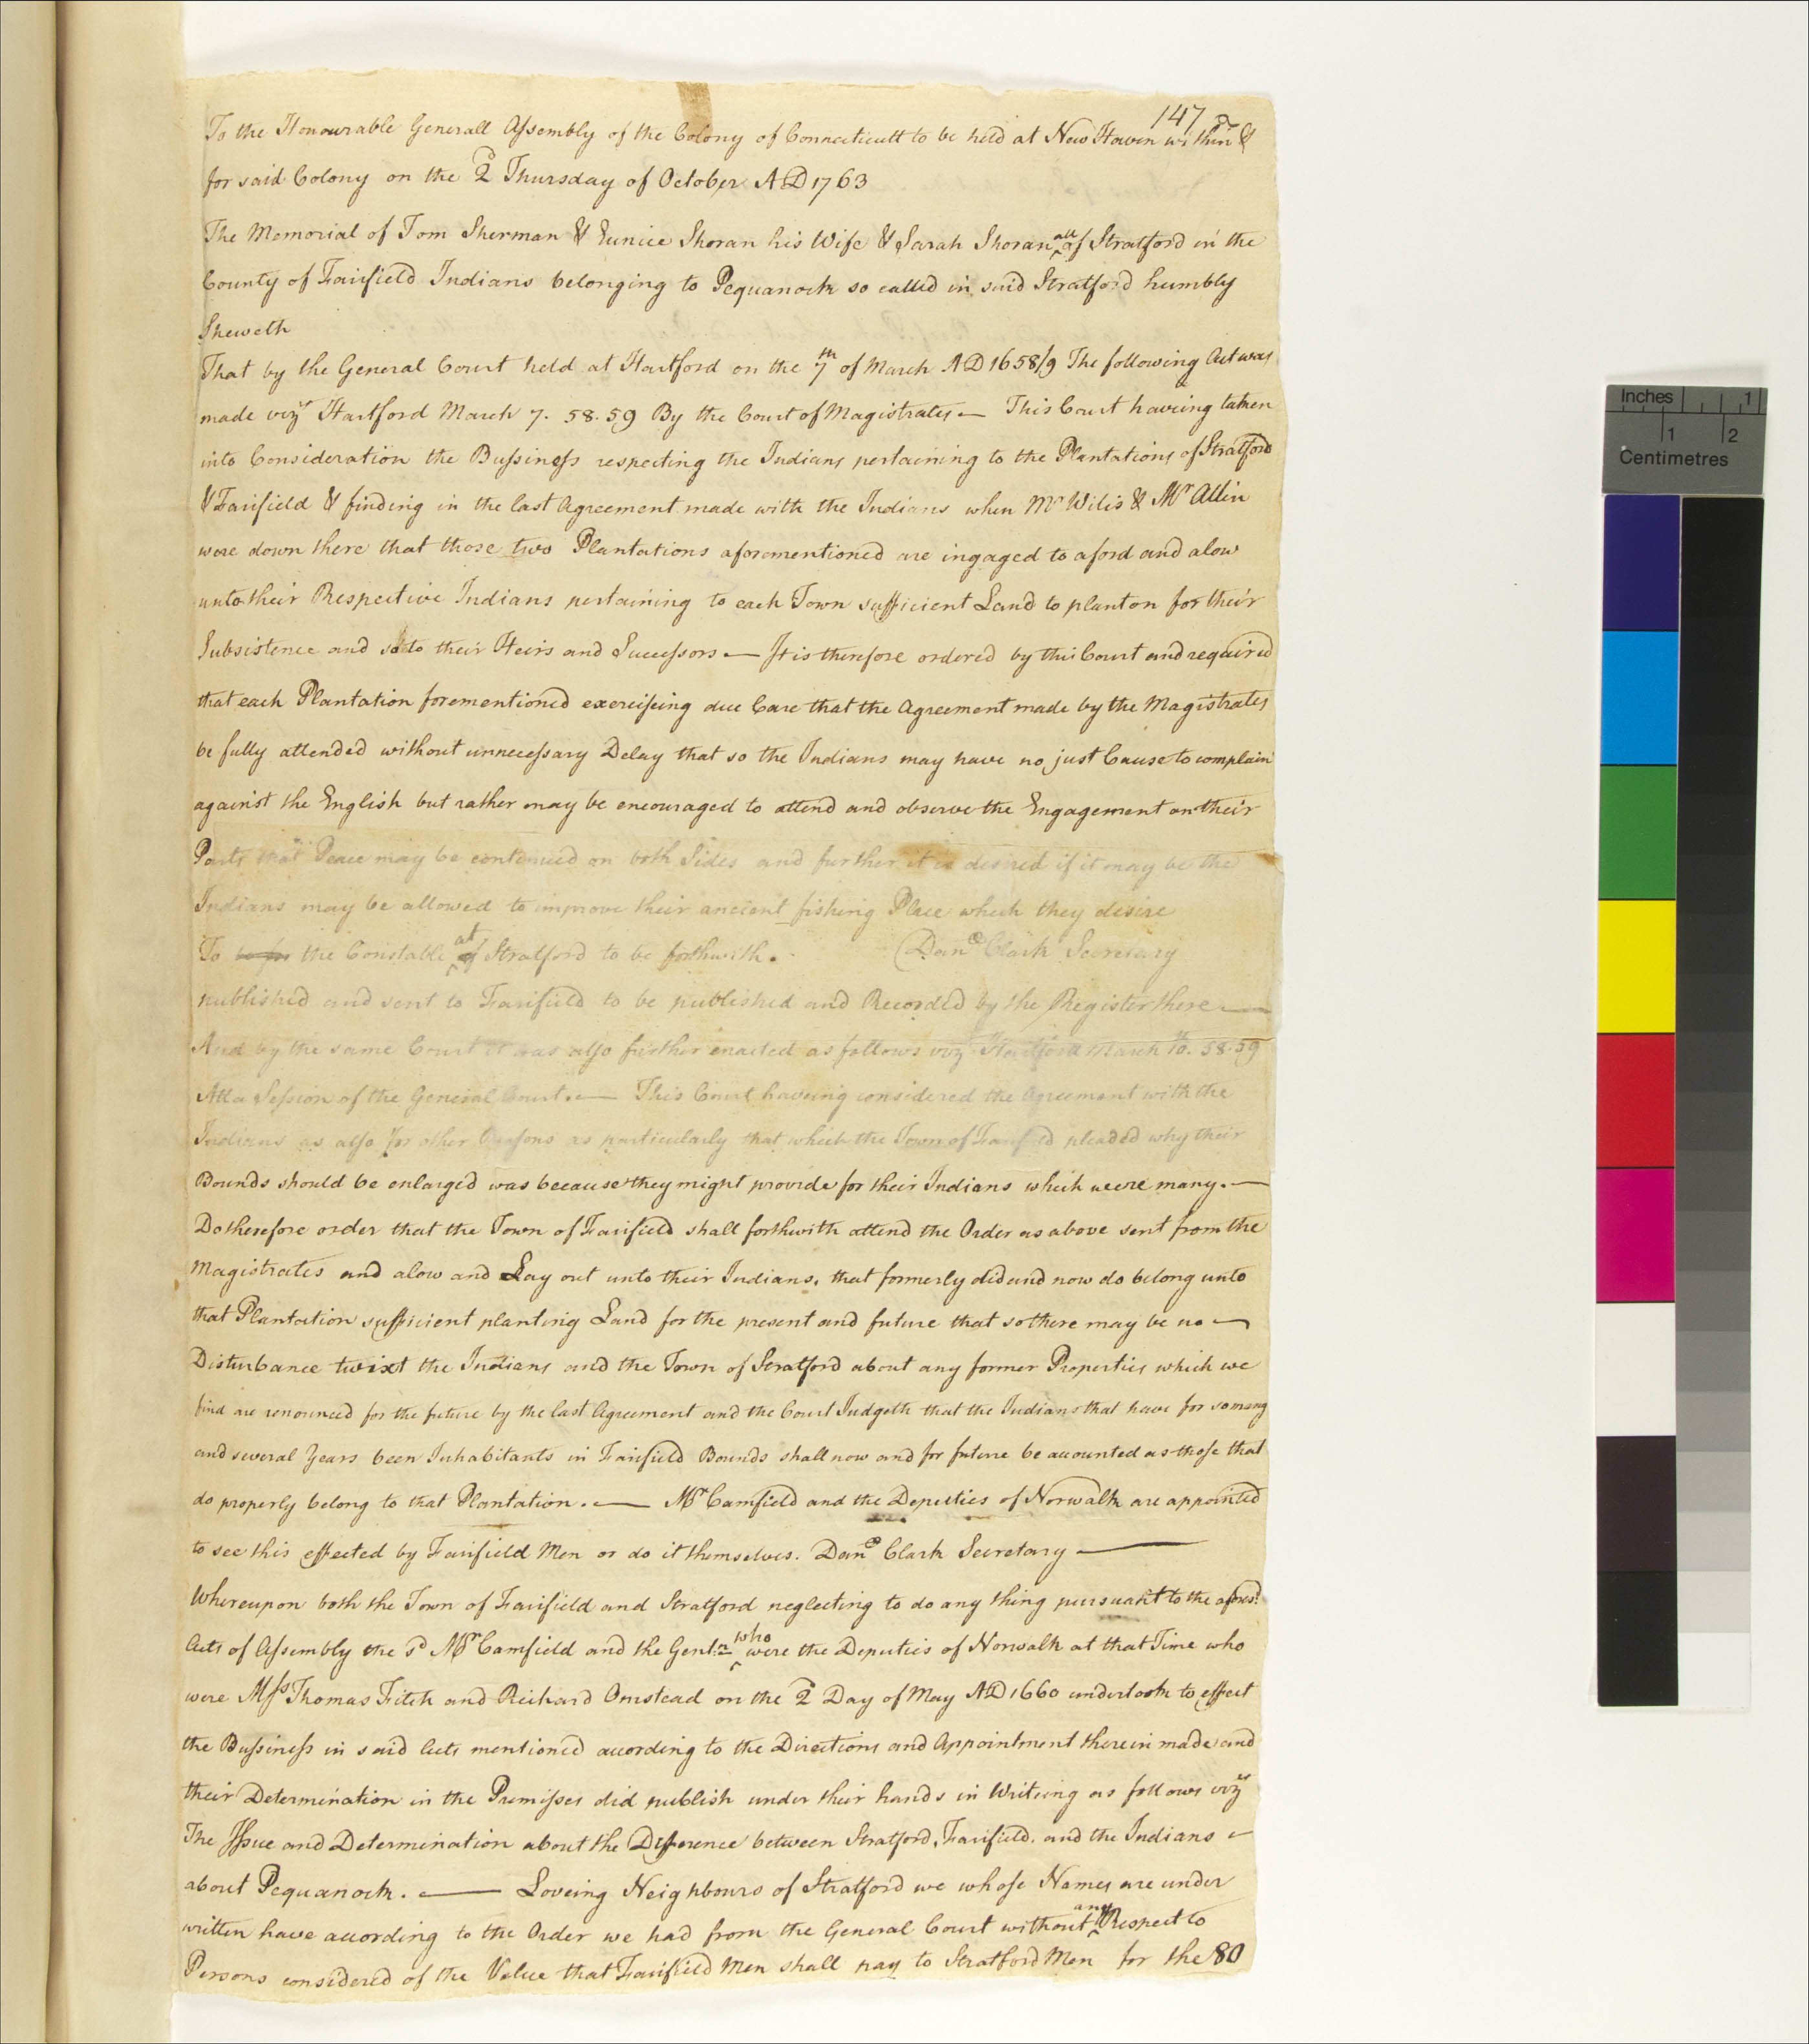 147 a
To the Honourable Generall Assembly of the Colony of Connecticutt to be held at New Haven within &
for said Colony on the 2d Thursday of October AD 1763
The Memorial of Tom Sherman & Eunice Shoran his Wife & Sarah Shoran all of Stratford in the
County of Fairfield Indians belonging to Pequanock so called in said Stratford humbly
Sheweth
That by the General Court held at Hartford on the 7th of March AD 1658/9 The following Act was
made vizt Hartford March 7. 58.59 By the Court of Magistrates — This Court having taken
into Consideration the Bussiness respecting the Indians pertaining to the Plantations of Stratford
& Fairfield & finding in the last Agreement made with the Indians when Mr Wilis & Mr Allin
were down there that those two Plantations aforementioned are ingaged to aford and alow
unto their Respective Indians pertaining to each Town sufficient Land to plant on for their
Subsistence and so to their Heirs and Successors — It is therefore ordered by this Court and required
that each Plantation forementioned exerciseing due Care that the Agreement made by the Magistrates
be fully attended without unnecessary Delay that so the Indians may have no just Cause to complain
against the English but rather may be encouraged to attend and observe the Engagement on their
Parts that Peace may be continued on both Sides and further it is desired if it may be the
Indians may be allowed to improve their ancient fishing Place which they desire
To the Constable at Stratford to be forthwith. Danll Clark Secretary
published and sent to Fairfield to be published and Recorded by the Register there —
And by the same Court it was also further enacted as follows vizt Hartford March 10th. 58.59
Att a Session of the General Court. — This Court haveing considered the Agreement with the
Indians as also for other Reasons as particularly that which the Town of Fairfield pleaded why their
Bounds should be enlarged was because they might provide for their Indians which weere many. —
Do therefore order that the Town of Fairfield shall forthwith attend the Order as above sent from the
Magistrates and alow and Lay out unto their Indians, that formerly did and now do belong unto
that Plantation sufficient planting Land for the present and future that so there may be no —
Disturbance twixt the Indians and the Town of Stratford about any former Properties which we
find are renounced for the future by the last Agreement and the Court Judgeth that the Indians that have for so many
and several Years been Inhabitants in Fairfield Bounds shall now and for future be accounted as those that
do properly belong to that Plantation. — Mr Camfield and the Deputies of Norwalk are appointed
to see this effected by Fairfield Men or do it themselves. Danll Clark Secretary —
Whereupon both the Town of Fairfield and Stratford neglecting to do any thing pursuant to the aforesd
Acts of Assembly the sd Mr Camfield and the Gentn who were the Deputies of Norwalk at that Time who
were Messs Thomas Fitch and Richard Omstead on the 2d Day of May AD 1660 undertook to effect
the Bussiness in said Acts mentioned according to the Directions and Appointment therein made and
their Determination in the Premisses did publish under their hands in Writeing as follows vizt
The Issue and Determination about the Difference between Stratford, Fairfield, and the Indians —
about Pequanock. — Loveing Neighbours of Stratford we whose Names are under
written have according to the Order we had from the General Court without any Respect to
Persons considered of the Value that Fairfield Men shall pay to Stratford Men for the 80